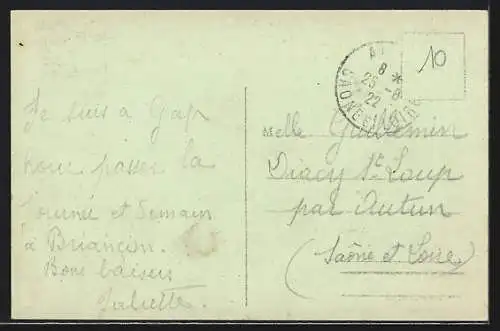 Je suis a Gap
pour passer la
Journé et Demain
à Briançon.
Bons baisers
Juliette.
A
8 *
25 - 8
22
SAONE ET LOIRE
10
Melle Guillemin
Diacy St. Loup
par Autun
(Saône et Loire)